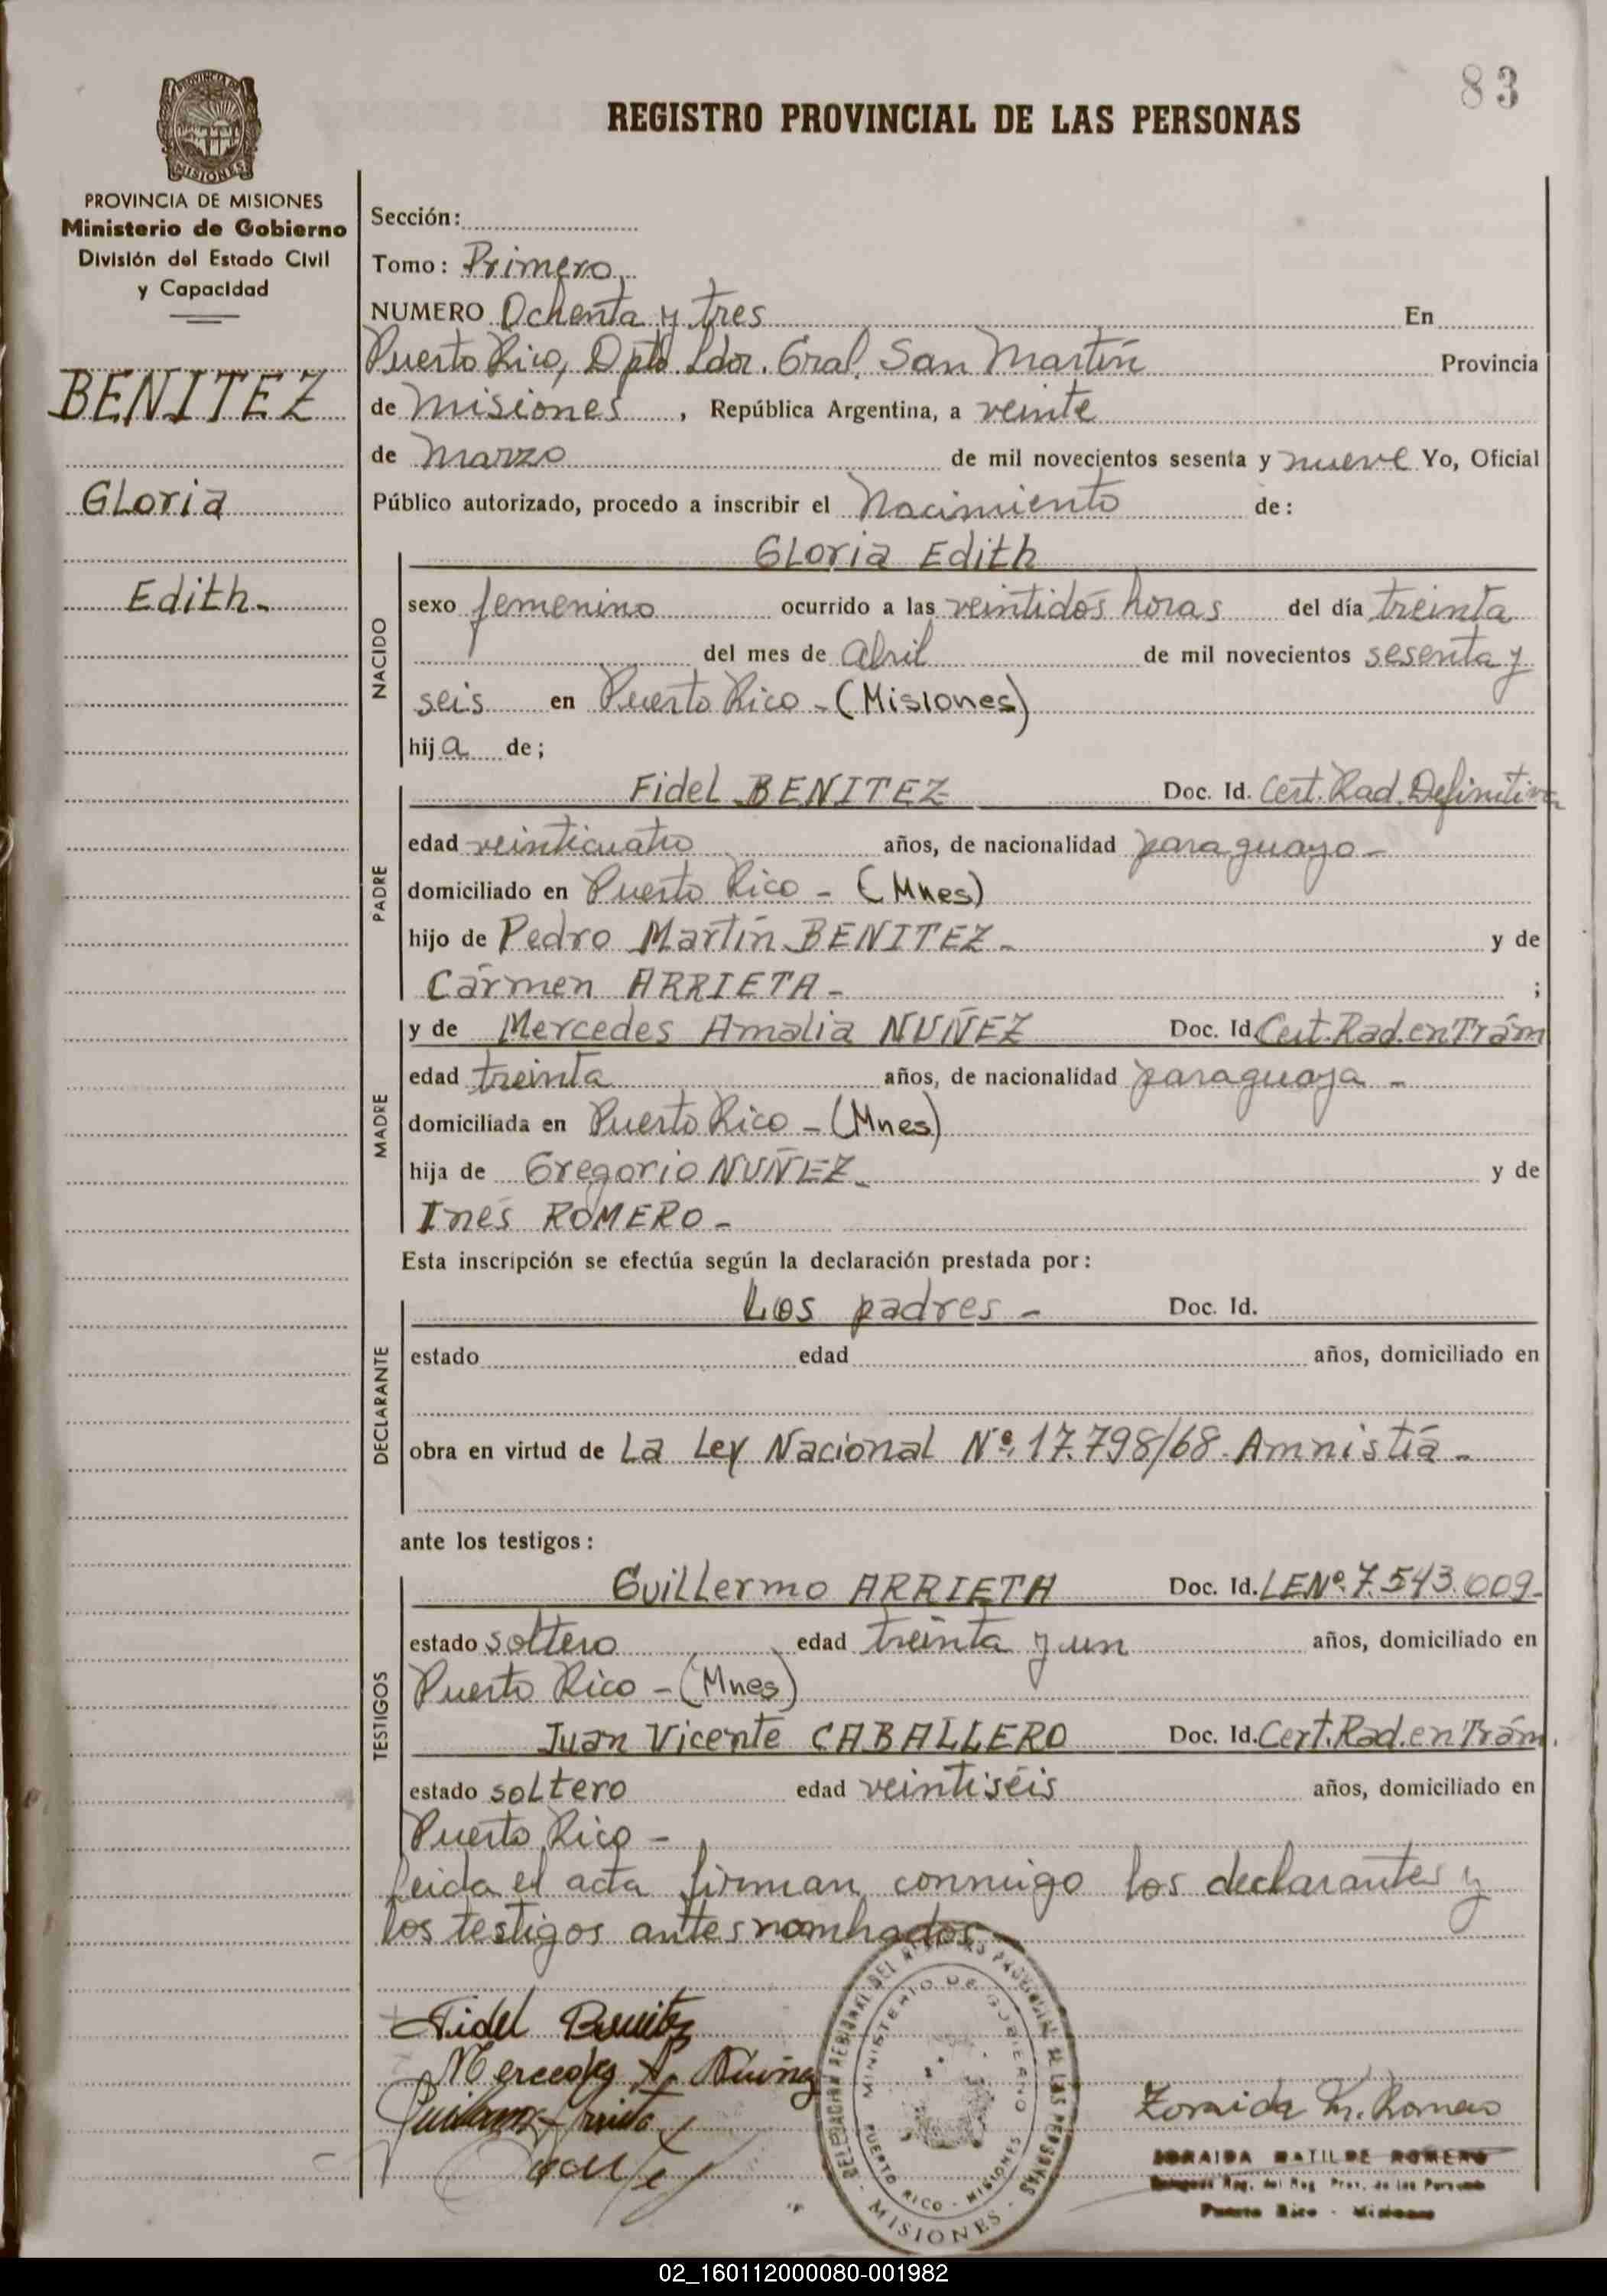 83
REGISTRO PROVINCIAL DE LAS PERSONAS
PROVINCIA DE MISIONES
Ministerio de Gobierno
División del Estado Civil
y Capacidad
BENITEZ
Gloria
Edith.
Sección:
Tomo: Primero
NUMERO Ochenta y tres En
Puerto Rico, Dpto Ldor. Gral. San Martín Provincia
de Misiones, República Argentina, a veinte
de Marzo de mil novecientos sesenta y nueve Yo, Oficial
Público autorizado, procedo a inscribir el Nacimiento de:
NACIDO
Gloria Edith
sexo femenino ocurrido a las veintidós horas del día treinta
del mes de Abril de mil novecientos sesenta y
seis en Puerto Rico - (Misiones)
hija de;
PADRE
Fidel BENITEZ Doc. Id. Cert. Rad. Definitiva
edad veinticuatro años, de nacionalidad paraguayo -
domiciliado en Puerto Rico - (Mnes)
hijo de Pedro Martín BENITEZ - y de
Cármen ARRIETA - ;
MADRE
y de Mercedes Amalia NUÑEZ Doc. Id. Cert. Rad. en Trám
edad treinta años, de nacionalidad paraguaya -
domiciliada en Puerto Rico - (Mnes)
hija de Gregorio NUÑEZ - y de
Inés ROMERO -
Esta inscripción se efectúa según la declaración prestada por:
DECLARANTE
Los padres - Doc. Id.
estado edad años, domiciliado en
obra en virtud de La Ley Nacional Nº 17.798/68. Amnistía -
ante los testigos:
TESTIGOS
Guillermo ARRIETA Doc. Id. LENº 7.543.009-
estado soltero edad treinta y un años, domiciliado en
Puerto Rico - (Mnes)
Juan Vicente CABALLERO Doc. Id. Cert. Rad. en Trám.
estado soltero edad veintiséis años, domiciliado en
Puerto Rico -
Leida el acta firman conmigo los declarantes y
los testigos antes nombrados
Fidel Benitez
Mercedes A. Nuñez
Guillermo Arrieta
DELEGACION REGIONAL DEL REGISTRO PROVINCIAL DE LAS PERSONAS
MINISTERIO DE GOBIERNO
PUERTO RICO - MISIONES
- MISIONES -
Zoraida M. Romero
ZORAIDA MATILDE ROMERO
Delegada Reg. del Reg. Prov. de las Personas
Puerto Rico - Misiones
02_160112000080-001982